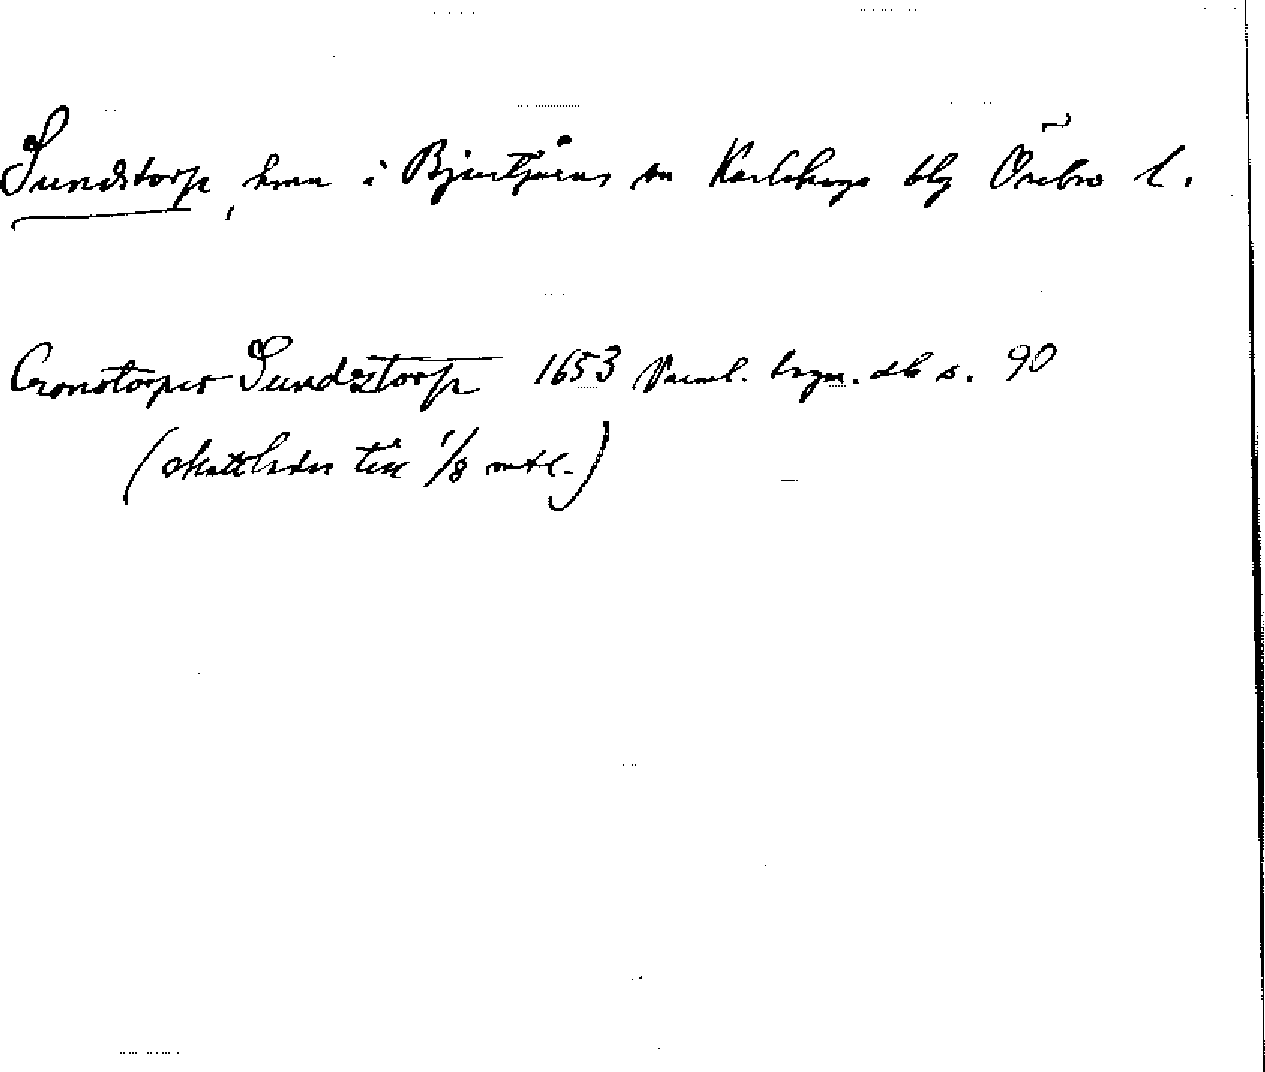 Sundstorp, hmn i Bjurtjärns sn Karlskoga blg Örebro l.
Cronotorper Sundztorp 1653 Värml. brgm. db s. 90
(skattlades till 1/8 mtl.)